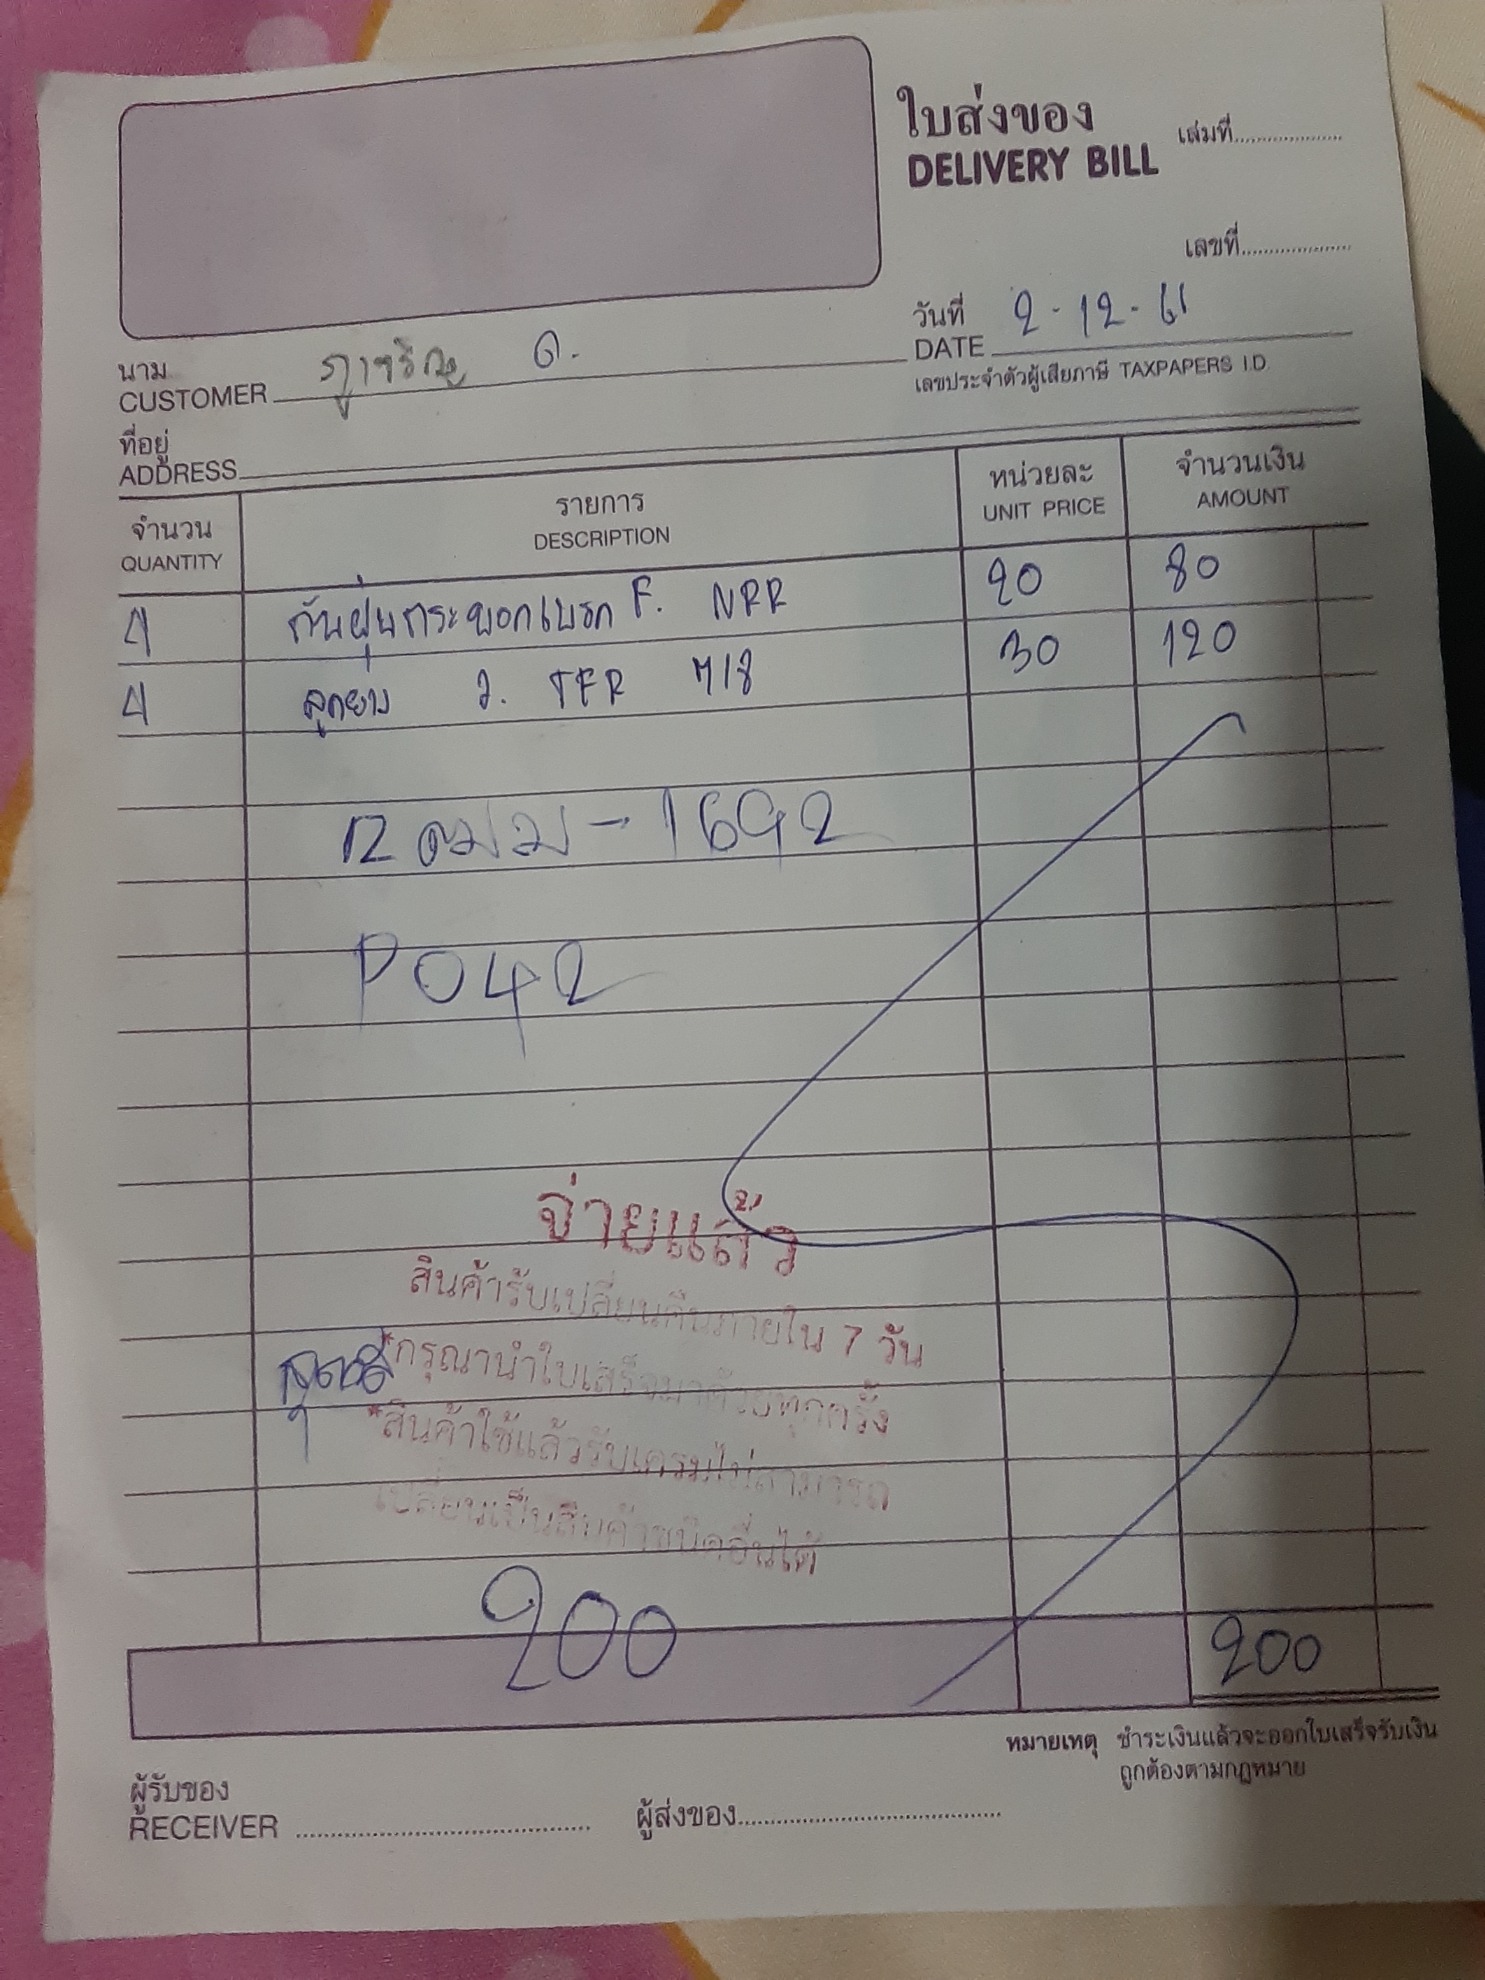 ใบส่งของ
DELIVERY BILL
เล่มที่....................
เลขที่....................
วันที่ 2-12-61
DATE
นาม
CUSTOMER
เลขประจำตัวผู้เสียภาษี TAXPAPERS I.D.
ที่อยู่
ADDRESS
จำนวน รายการ หน่วยละ จำนวนเงิน
QUANTITY DESCRIPTION UNIT PRICE AMOUNT
4 กันฝุ่นกระบอกเบรก F. NRR 20 80
4 ลูกยาง ว. TFR 7/8 30 120
- 1692
P042
จ่ายแล้ว
สินค้ารับเปลี่ยนคืนภายใน 7 วัน
*กรุณานำใบเสร็จมาด้วยทุกครั้ง
*สินค้าใช้แล้วรับเครมไม่สามารถ
เปลี่ยนเป็นสินค้าชนิดอื่นได้
200 200
หมายเหตุ ชำระเงินแล้วจะออกใบเสร็จรับเงิน
ถูกต้องตามกฎหมาย
ผู้รับของ
RECEIVER
ผู้ส่งของ